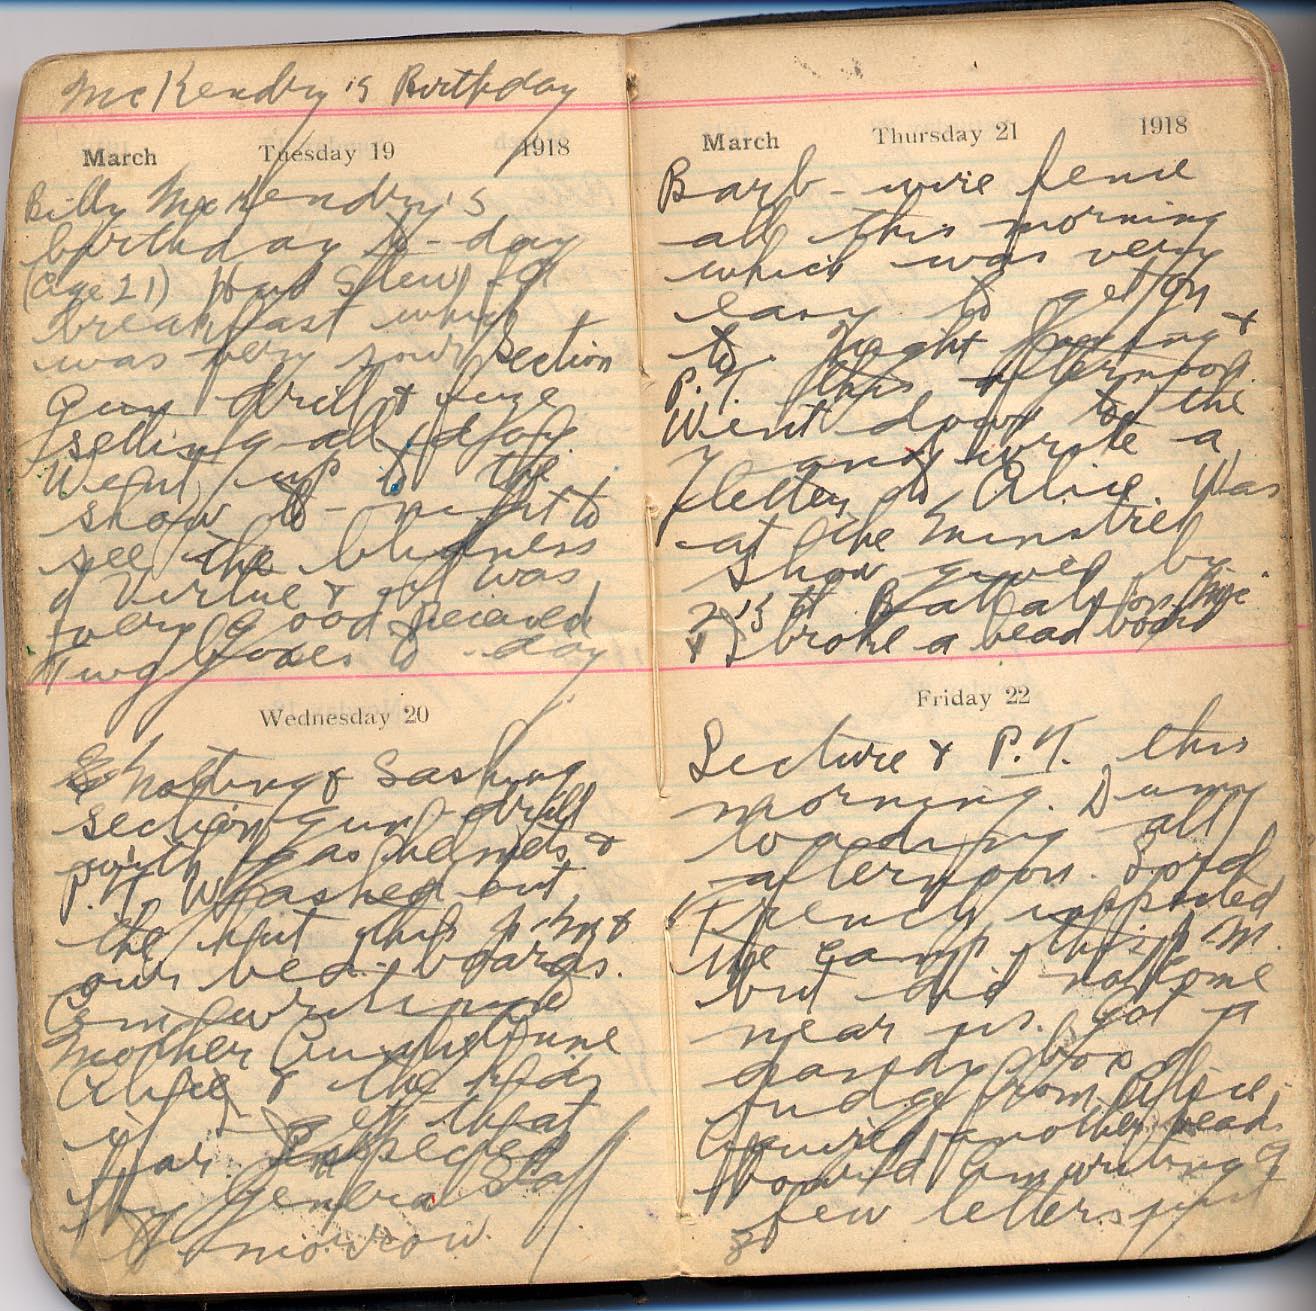 McKendry's Birthday
March Tuesday 19 1918
Billy McKendry's
birthday to-day
(age 21) Had Stew for
breakfast which
was very sour Section
Gun drill & fuze
setting all day
Went up to the
show to-night to
see the blindness
of Virtue & it was
very good Recieved
Two boxes to-day
Wednesday 20
Knotting & Lashing
section gun drill
with gas helmets &
P.T. Washed out
the hut this p.m. &
our bed-boards.
Am writing
Mother Auntie June
Alice & the kids
if I get that
far Inspected
by General Staff
tomorrow
March Thursday 21 1918
Barb-wire fence
all this morning
which was very
easy to get on
to. &
P.T. this afternoon.
Went down to the
Y and wrote a
letter to Alice. Was
at the Minstrel
Show gived by
253 Bt Battalion. Mc
& I broke a bead board
Friday 22
Lecture & P.T. this
morning. Dumy
loading all
afternoon. Lord
French inspected
the camp this p.m.
but did not come
near us. Got a
dandy box of
fudge from Alice.
another bead
board Am writing a
few letters just